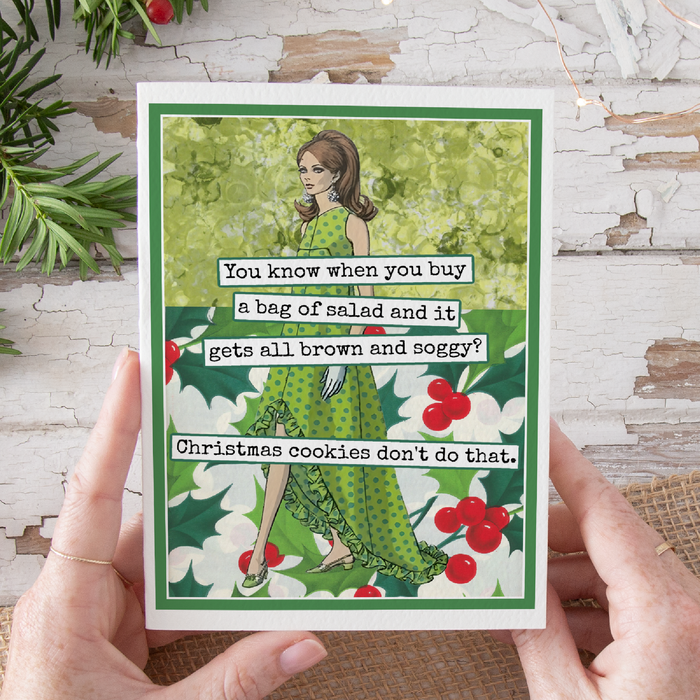 You know when you buy
a bag of salad and it
gets all brown and soggy?
Christmas cookies don't do that.